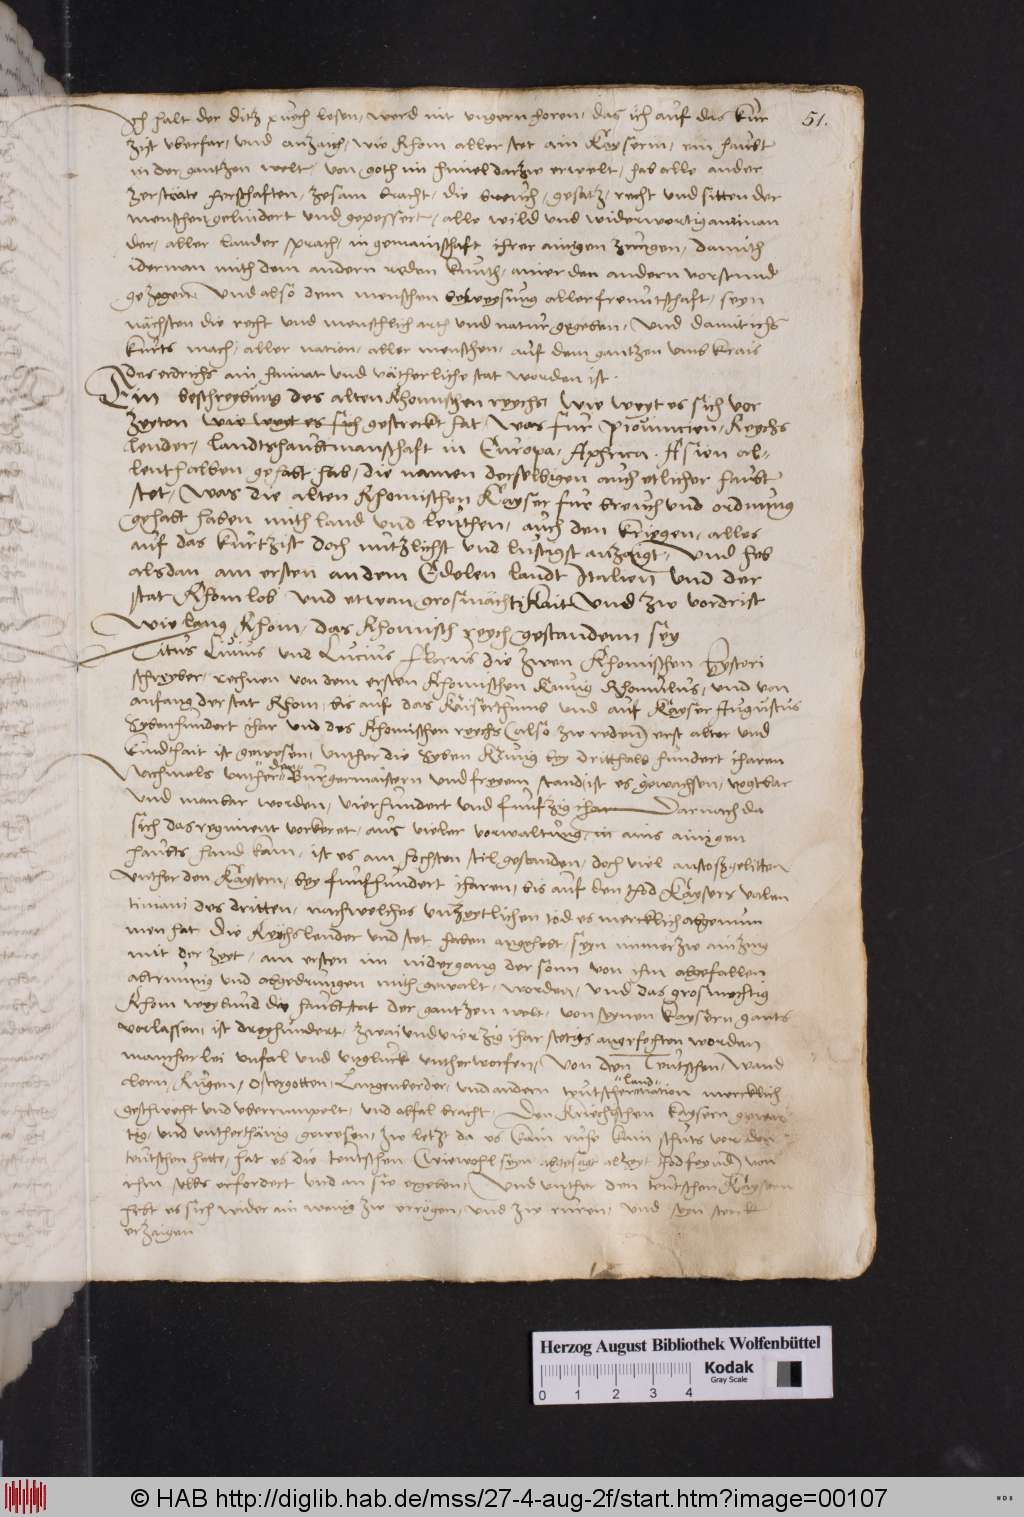 51.
Ich halt der ditz puech lesen, werd nit ungern horen, das ich auf das kür
zist uberfar, und anzaig, wie Rhom aller stet ain Kayserin, ein haubt
in der gantzen welt, von goth im himel darzw erwelt, hab alle ander
zersträte herschaften, zesam bracht, die breuch, gesatz, recht und sitten der
menschen gelindert und gepessert, alle wild und widerwertig anainan
der, aller lander sprach, in gemainschaft ihrer ainigen zungen, damith
iderman mith dem andern reden kunth, ainer den andern verstund
gezogen, und also dem menschen beweysung aller freuntschaft, seyn
nächsten die recht und menschlich arth und natur gegeben, und damit ichs
kurts mach, aller nation, aller menschen, auf dem gantzen umb krais
des erdrichs ain haimat und vätherliche stat worden ist.
Ein beschreybung des alten Rhomischen reychs wie weyt es sich vor
zeyten wie weyt es sich gestreckt hat, was für Provincien, Reychs
lender, landtshaubtmanschaft in Europa, Aphrica. Asien al
lenthalben gehabt hab, die namen derselbigen auch etlicher haubt
stet, was die alten Rhomischen Kayser für breuch und ordnung
gehabt haben mith land und leuthen, auch den kriegen, alles
auf das kurtzist doch nutzlichst und lustigst anzaigt, und heb
alsdan am ersten an dem Edelen landt Italien und der
stat Rhom lob und etwan grosmächtikait und zw vordrist
wie lang Rhom, das Rhomisch reych gestandenn sey
Titus Livius und Lucius Florus die zwen Rhomischen hystori
schreyber, rechnen von dem ersten Rhomischen Kunig Rhomulus, und von
anfang der stat Rhom, bis auf das Kaiserthumb und auf Kayser Augustus
sybenhundert ihar und des Rhomischen reychs (also zw reden) erst alter und
kindthait ist gewesen, unther die syben Kunig bey dritthalb hundert iharen
Nachmols unther den Burgermaistern und freyem stand ist es gewachsen, vogtbar
und manbar worden, vierhundert und funfzig ihar Darnach da
sich das regiment verkeret, aus vieler verwaltung, in ains ainigen
haubts hand kam, ist es am höchsten stil gestanden, doch viel anstosz gelitten
unther den Kaysern, bey funfhundert iharen, bis auf den tod Kaysers valen
timani des dritten, nach welches unzeytlichen tod es mercklich abgenum
men hat Die Reychslender und stet haben angehebt, seyn immerzw ainzing
mit der zeyt, am ersten im nidergang der sonn von ihm abgefallen
abtrunig und abgedrungen mith gewalt, worden, und das grosmechtig
Rhom weylund die haubtstat der gantzen welt, von seynen kaysern gants
verlassen, ist dreyhundert, zwai und vierzig ihar stetigs angefochten worden
mancherlei unfal und unglück unther worfen, Von den Teutschen, Wand
alern, Rugen, ostergotten, Langenberder, und andern teutscher land nation mercklich
geschwecht und uberrumpelt, und abfal bracht, Den Kriechischen kaysern gewar
tig, und untherthänig gewesen, zw letzt da es kain ruhe kain schuts vor den
teutschen hette, hat es die teutschen (wiewohl seyn abgesagt alzeyt tod feynd) von
ihm selbs erfordert und an sie ergeben, Und unther den teutschen Kaysern
hebt es sich wider ain wenig zw erregen, und zw ruren, und seyn sterck
erzaigen
Herzog August Bibliothek Wolfenbüttel
Kodak
Gray Scale
0 1 2 3 4
© HAB http://diglib.hab.de/mss/27-4-aug-2f/start.htm?image=00107